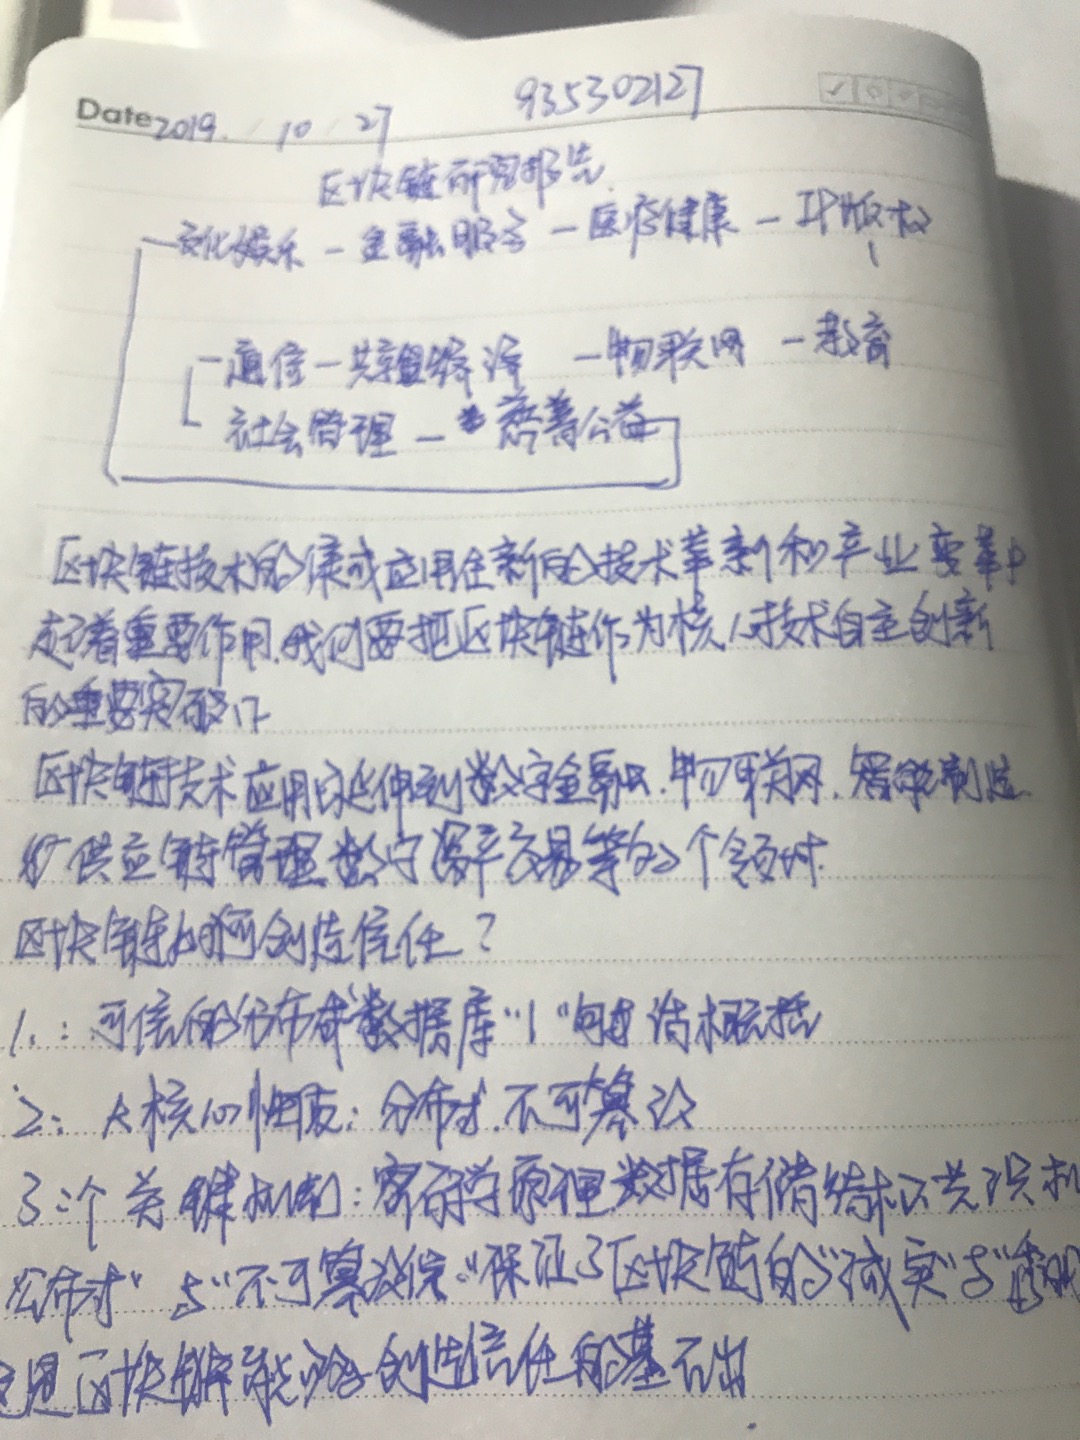 Date 2019. 10 27 935302127
区块链研究报告
文化娱乐 — 金融服务 — 医疗健康 — IP版权
— 通信 — 共享经济 — 物联网 — 教育
社会管理 — 慈善公益
区块链技术的集成应用在新的技术革新和产业变革中
起着重要作用.我们要把区块链作为核心技术自主创新
的重要突破口
区块链技术应用已延伸到数字金融.物联网.智能制造
供应链管理.数字资产交易等多个领域.
区块链如何创造信任?
1.:可信的分布式数据库"1"句话概括
2:大核心性质:分布式.不可篡改
3:个关键机制:密码学原理 数据存储结构 共识机
分布式"与"不可篡改性"保证了区块链的"诚实"与"透明
这是区块链能够创造信任的基础